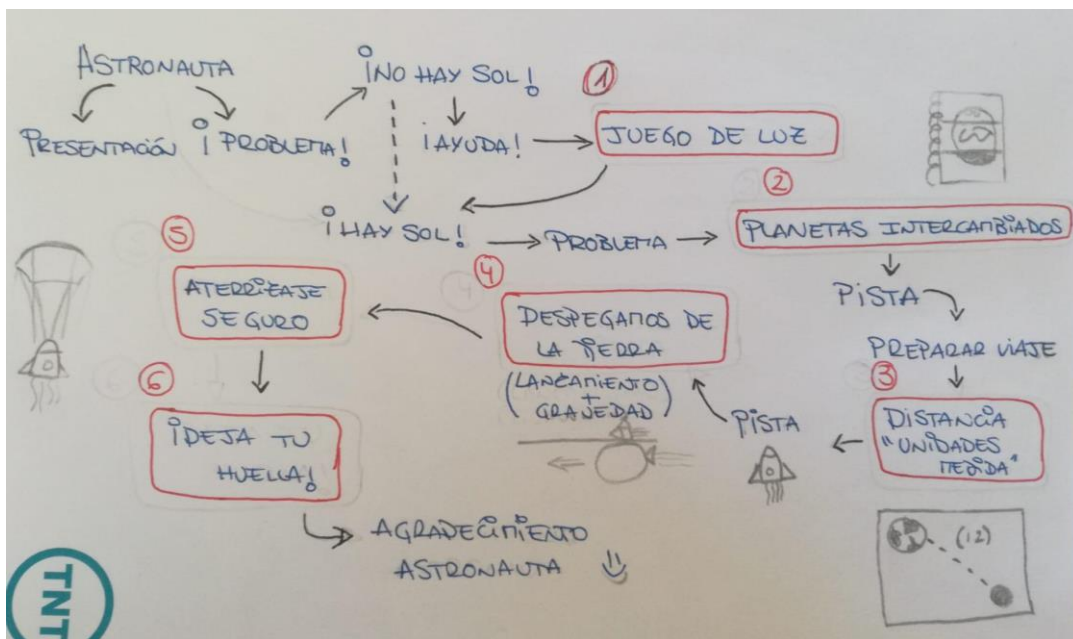 ASTRONAUTA
PRESENTACIÓN
¡PROBLEMA!
¡NO HAY SOL!
¡AYUDA!
1
JUEGO DE LUZ
¡HAY SOL!
PROBLEMA
2
PLANETAS INTERCAMBIADOS
PISTA
PREPARAR VIAJE
3
DISTANCIA
"UNIDADES
MEDIDA"
(12)
PISTA
4
DESPEGAMOS DE
LA TIERRA
(LANZAMIENTO
+
GRAVEDAD)
5
ATERRIZAJE
SEGURO
6
¡DEJA TU
HUELLA!
AGRADECIMIENTO
ASTRONAUTA
TNT